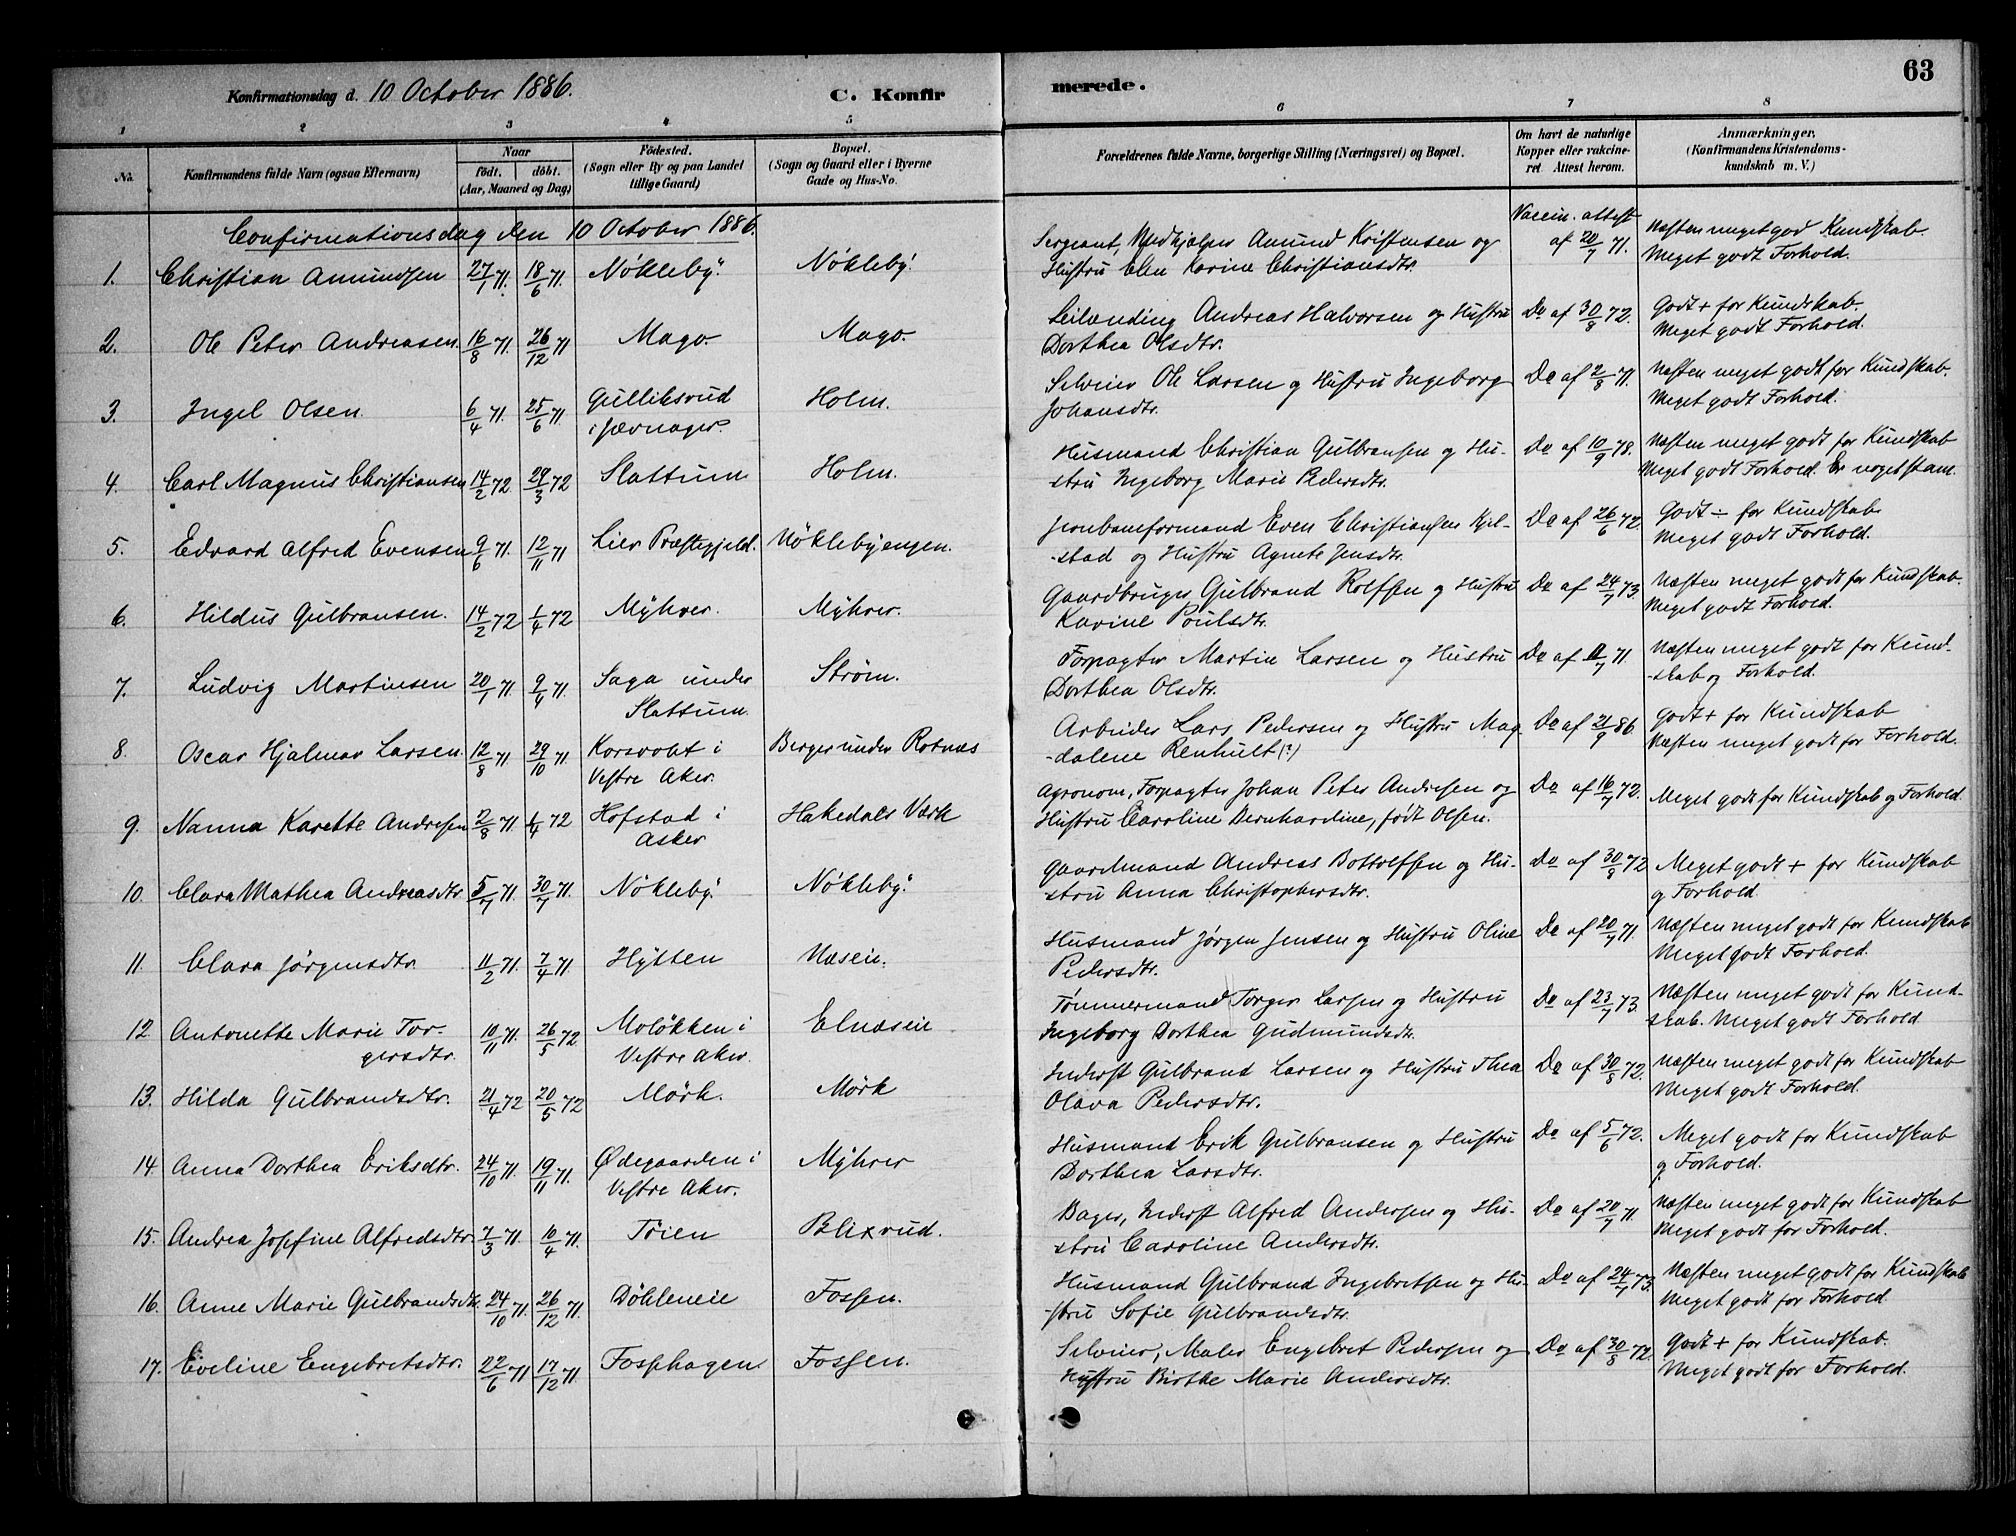 63
Konfirmationsdag d. 10 October 1886.
C. Konfirmerede.
1 2 3 4 5 6 7 8
No. Konfirmandens fulde Navn (ogsaa Efternavn)
Naar födt. döbt. (Aar, Maaned og Dag)
Födested. (Sogn eller By og paa Landet tillige Gaard)
Bopæl. (Sogn og Gaard eller i Byerne Gade og Hus-No.
Forældrenes fulde Navne, borgerlige Stilling (Næringsvei) og Bopæl.
Om havt de naturlige Kopper eller vakcineret Attest herom.
Anmærkninger, (Konfirmandens Kristendomskundskab m. V.)
Confirmationsdag den 10 October 1886.
1. Christian Amundsen 27/1 71. 18/6 71. Nökleby. Nökleby.
Sergeant, Medhjælper Amund Kristensen og
Hustru Elen Karine Christiansdtr.
Vaccin. attest af 20/7 71.
Næsten meget god Kundskab.
Meget godt Forhold.
2. Ole Peter Andreasen 16/8 71. 26/12 71 Mago. Mago.
Leilænding Andreas Halvorsen og Hustru
Dorthea Olsdtr.
Do af 30/8 72.
Godt + for Kundskab.
Meget godt Forhold.
3. Ingel Olsen 6/4 71. 25/6 71. Gulliksrud
i Jævnager. Holm.
Selveier Ole Larsen og Hustru Ingeborg
Johansdtr.
Do af 2/8 71.
Næsten meget godt for Kundskab.
Meget godt Forhold.
4. Carl Magnus Christiansen 14/2 72 29/3 72 Slattum Holm.
Husmand Christian Gulbransen og Hu-
stru Ingeborg Marie Pedersdtr.
Do af 10/9 78.
Næsten meget godt for Kundskab
Meget godt Forhold. Er noget stam.
5. Edvard Alfred Evensen 9/6 71. 12/11 71 Lier Præstegjeld. Nöklebyengen.
Jernbaneformand Even Christiansen Kjel-
-stad og Hustru Agnete Jensdtr.
Do af 26/6 72.
Godt ÷ for Kundskab
Meget godt Forhold.
6. Hildus Gulbransen. 14/2 72 1/4 72 Myhrer. Myhrer.
Gaardbruger Gulbrand Rolfsen og Hustru
Karine Poulsdtr.
Do af 24/7 73.
Næsten meget godt for Kundskab.
Meget godt Forhold.
7. Ludvig Martinsen 20/1 71. 9/4 71. Saga under
Slattum. Strøm.
Forpagter Martin Larsen og Hustru
Dorthea Olsdtr.
Do af 11/7 71.
Næsten meget godt for Kund-
-skab og Forhold.
8. Oscar Hjalmar Larsen 12/8 71 29/10 71 Korsvoht i
Vestre Aker. Berger under Rotnæs
Arbeider Lars Pedersen og Hustru Mag-
-dalene Renhult (?)
Do af 21/9 86.
Godt + for Kundskab
Næsten meget godt for Forhold.
9. Nanna Karette Andresen 2/8 71. 1/4 72 Hofstad i
Asker Hakedals Værk
Agronom, Forpagter Johan Peter Andresen og
Hustru Caroline Bernhardine, født Olsen.
Do af 16/7 72.
Meget godt for Kundskab og Forhold.
10. Clara Mathea Andreasdtr. 5/7 71. 30/7 71. Nökleby. Nökleby.
Gaardmand Andreas Bottolfsen og Hu-
stru Anna Christophersdtr.
Do af 30/8 72
Meget godt + for Kundskab
og Forhold.
11. Clara Jörgensdtr. 11/2 71. 7/4 71. Hytten Næseie.
Husmand Jörgen Jensen og Hustru Oline
Pedersdtr.
Do af 20/7 71.
Næsten meget godt for Kundskab
Meget godt Forhold.
12. Antonette Marie Tor-
gersdtr. 10/11 71. 26/5 72 Molökken i
Vestre Aker. Elnæseie
Tömmermand Torger Larsen og Hustru
Ingeborg Dorthea Gudmundsdtr.
Do af 23/7 73.
Næsten meget godt for Kund-
skab. Meget godt Forhold.
13. Hilda Gulbrandsdtr. 21/4 72 20/5 72 Mörk. Mörk
Inderst Gulbrand Larsen og Hustru Thea
Olava Pedersdtr.
Do af 30/8 72.
Næsten meget godt for Kundskab
Meget godt Forhold.
14. Anna Dorthea Eriksdtr. 24/10 71. 19/11 71. Ødegaarden i
Vestre Aker. Myhrer
Husmand Erik Gulbransen og Hustru
Dorthea Larsdtr.
Do af 5/6 72.
Meget godt for Kundskab
og Forhold.
15. Andrea Josefine Alfredsdtr. 7/3 71. 10/4 71. Töien Blixrud.
Bager, Inderst Alfred Andersen og Hu-
stru Caroline Andersdtr.
Do af 20/7 71.
Næsten meget godt for Kundskab
Meget godt for Forhold.
16. Anne Marie Gulbrandsdtr. 24/10 71. 26/12 71. Döhleneie Fossen.
Husmand Gulbrand Ingebretsen og Hu-
-stru Sofie Gulbrandsdtr.
Do af 24/7 73.
Næsten meget godt for Kundskab
Meget godt for Forhold.
17. Eveline Engebretsdtr. 22/6 71 17/12 71. Fosshagen. Fossen.
Selveier, Maler Engebret Pedersen og
Hustru Birthe Marie Andersdtr.
Do af 30/8 72.
Godt + for Kundskab.
Meget godt for Forhold.